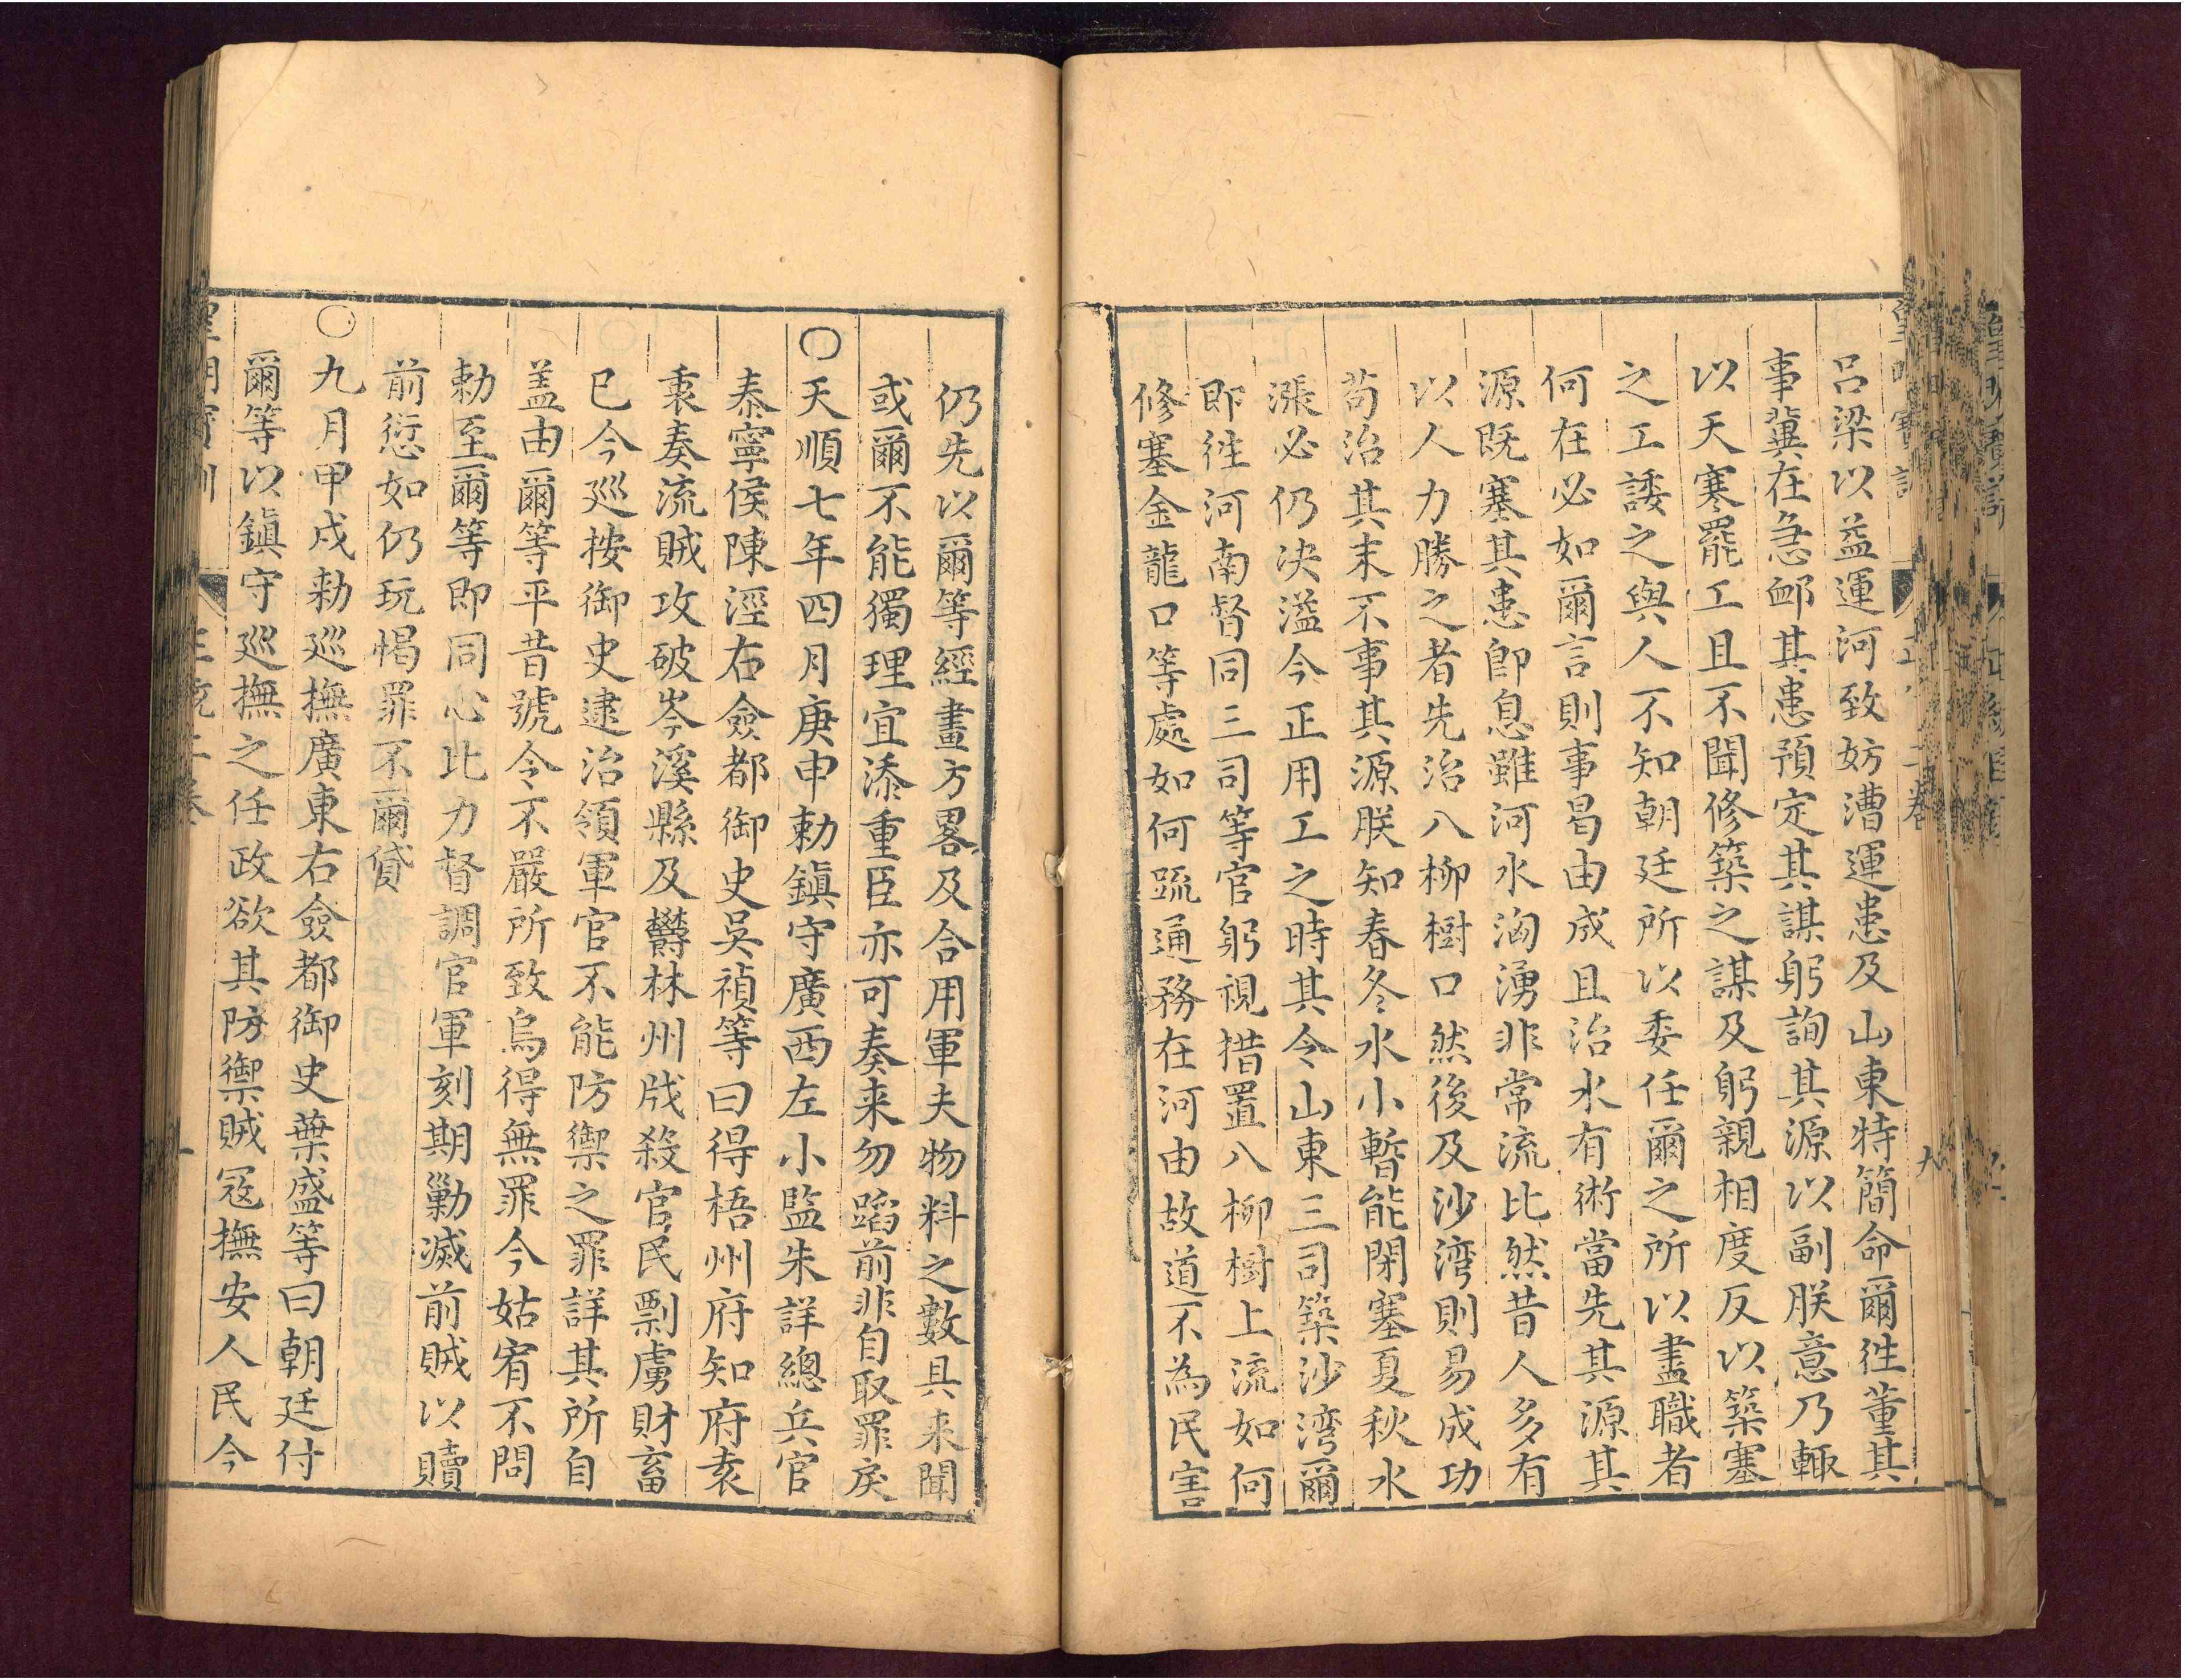 呂梁以益運河致妨漕運患及山東特簡命爾徃董其
事冀在急䘏其患預定其謀躬詢其源以副朕意乃輙
以天寒罷工且不聞修築之謀及躬親相度反以築塞
之工諉之與人不知朝廷所以委任爾之所以盡職者
何在必如爾言則事曷由成且治水有術當先其源其
源既塞其患卽息雖河水洶湧非常流比然昔人多有
以人力勝之者先治八柳樹口然後及沙湾則易成功
茍治其末不事其源朕知春冬水小暫能閉塞夏秋水
漲必仍决溢今正用工之時其令山東三司築沙湾爾
即徃河南督同三司等官躬視措置八柳樹上流如何
修塞金龍口等處如何疏通務在河由故道不為民害
仍先以爾等經畫方畧及合用軍夫物料之數具来聞
或爾不能獨理宜添重臣亦可奏来勿蹈前非自取罪戾
○天順七年四月庚申勅鎮守廣西左小監朱詳總兵官
泰寧侯陳涇右僉都御史吳禎等曰得梧州府知府袁
衷奏流賊攻破岑溪縣及欝林州戕殺官民剽虜財畜
已今巡按御史逮治領軍官不能防禦之罪詳其所自
盖由爾等平昔號令不嚴所致烏得無罪今姑宥不問
勅至爾等即同心比力督調官軍刻期勦滅前賊以贖
前愆如仍玩愒罪不爾貸
○九月甲戌勅巡撫廣東右僉都御史葉盛等曰朝廷付
爾等以鎮守巡撫之任政欲其防禦賊冦撫安人民今